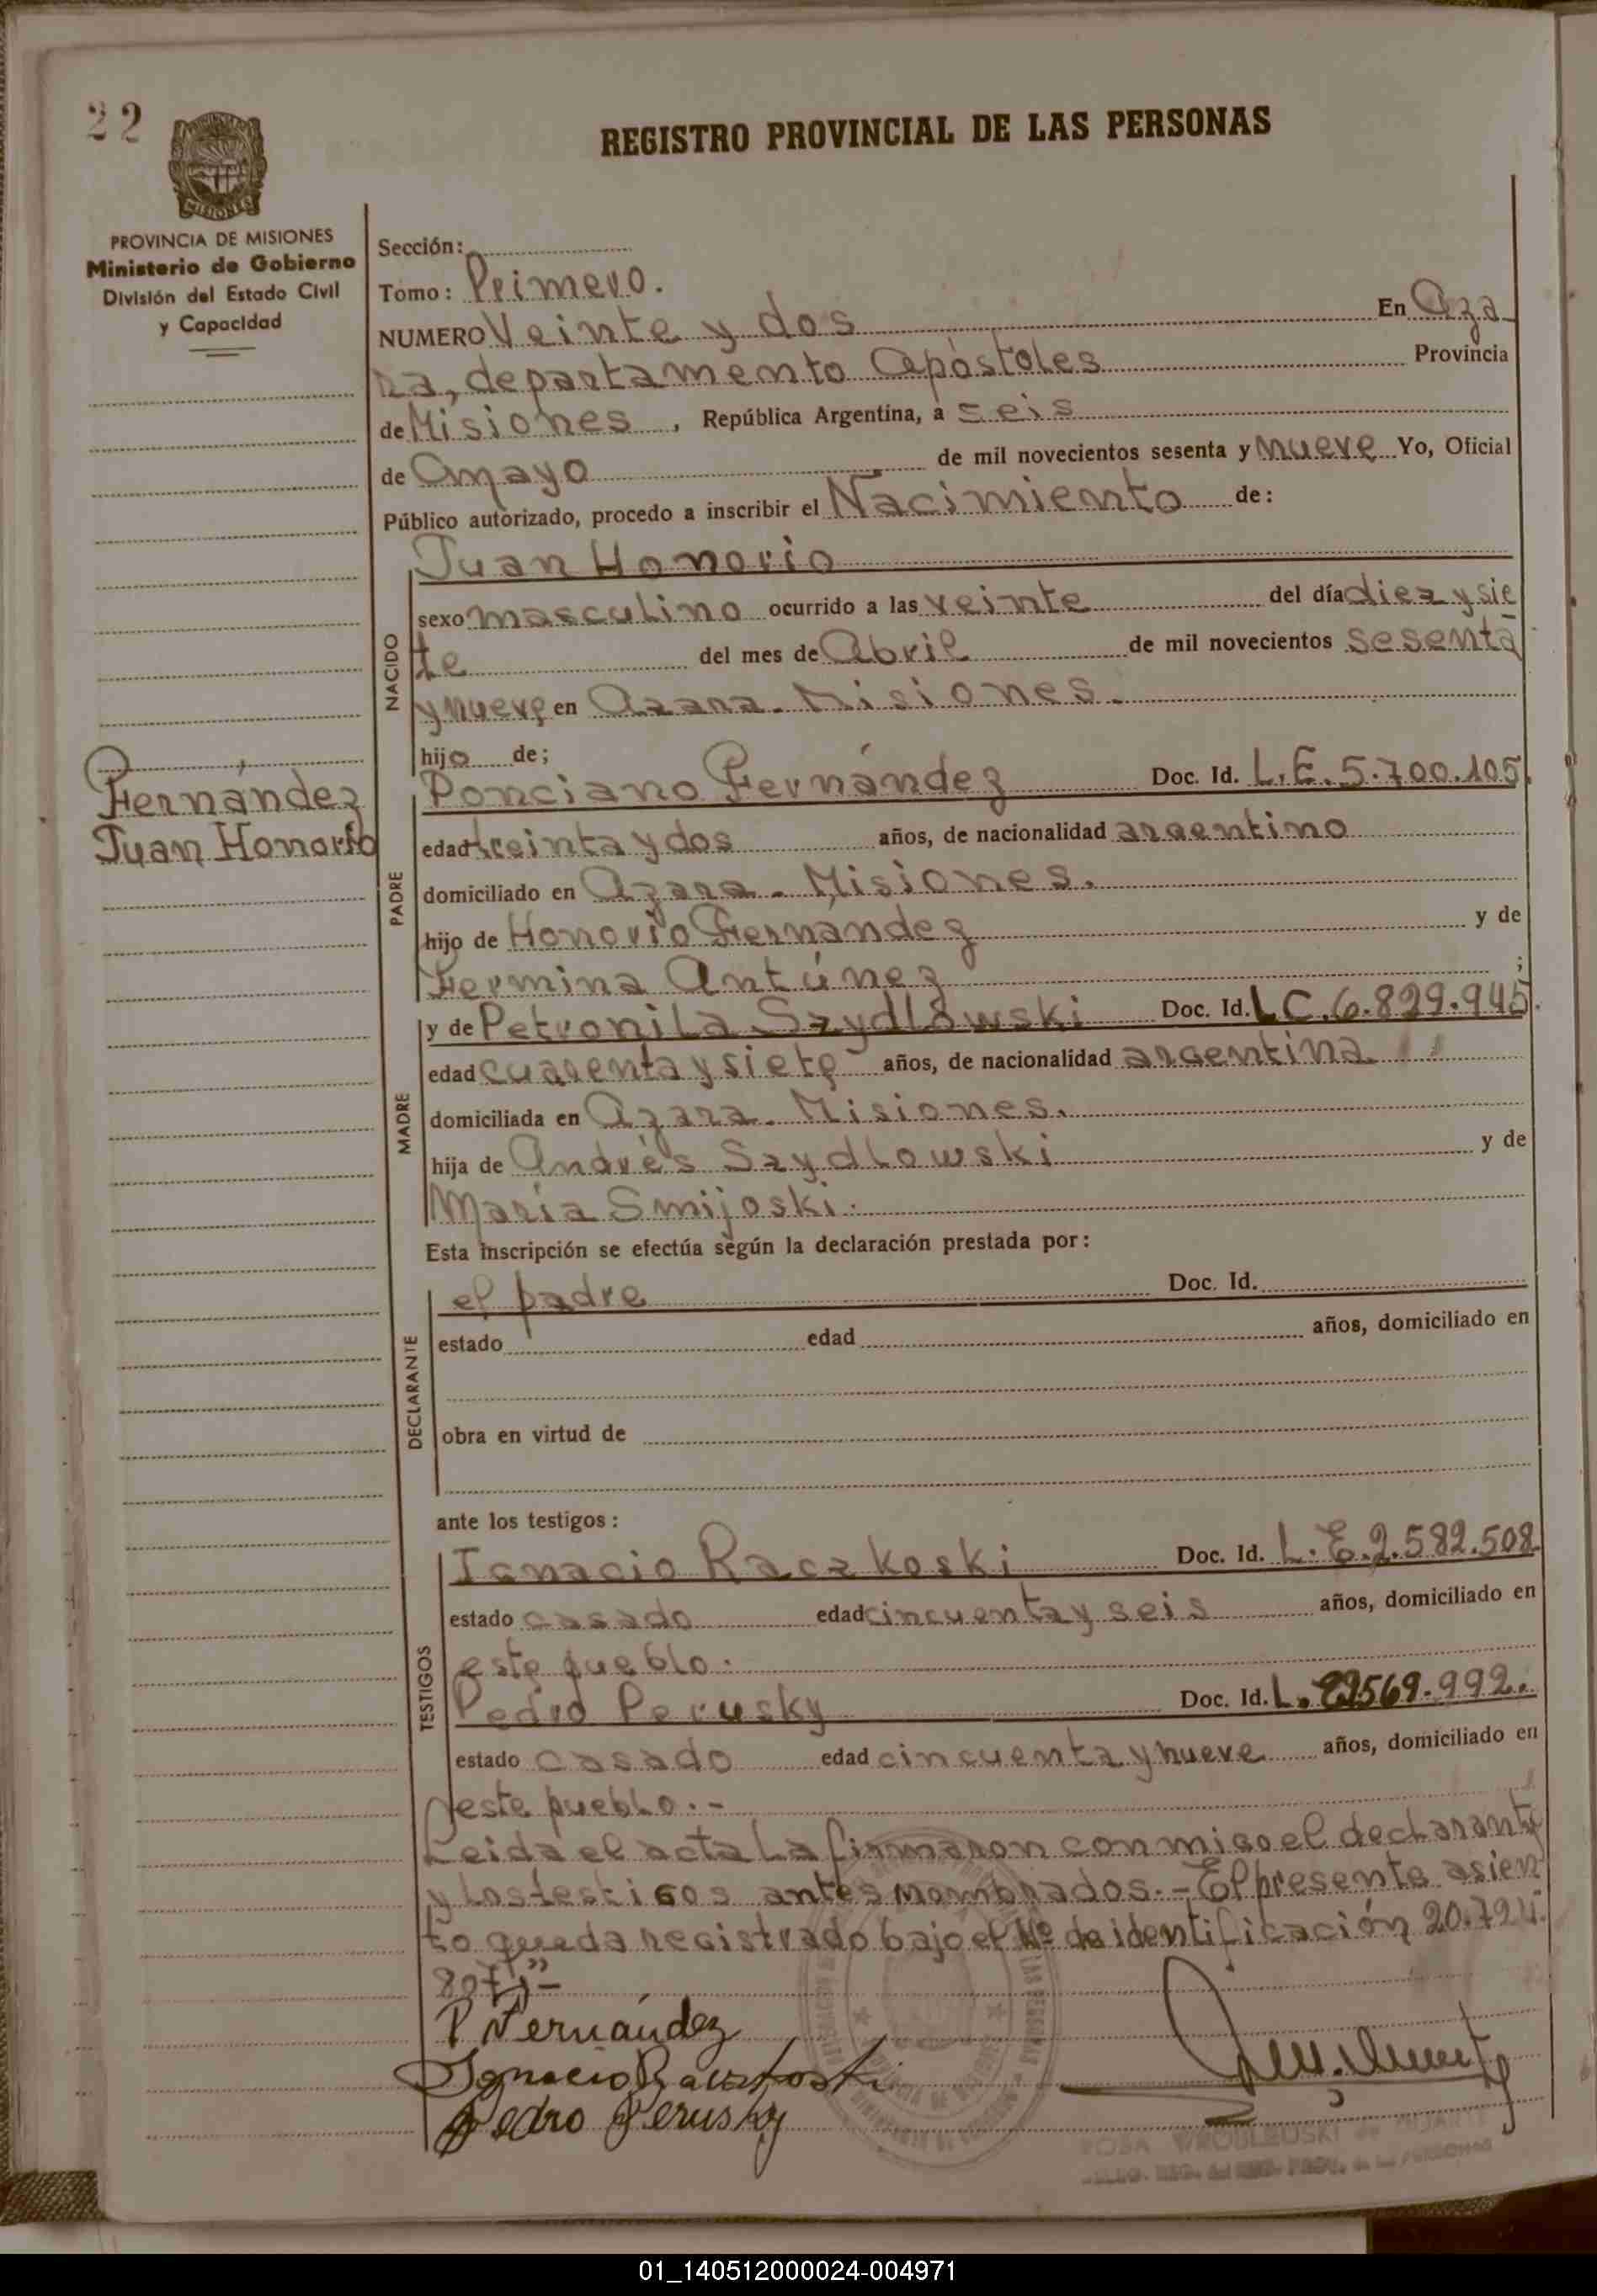 22
REGISTRO PROVINCIAL DE LAS PERSONAS
MISIONES
PROVINCIA DE MISIONES
Ministerio de Gobierno
División del Estado Civil
y Capacidad
Sección:
Tomo: Primero.
NUMERO Veinte y dos En Aza
ra, departamento Apóstoles Provincia
de Misiones, República Argentina, a seis
de mayo de mil novecientos sesenta y nueve Yo, Oficial
Público autorizado, procedo a inscribir el Nacimiento de:
Juan Honorio
NACIDO
sexo masculino ocurrido a las veinte del día diez y sie
te del mes de Abril de mil novecientos sesenta
y nueve en Azara. Misiones.
hijo de;
Fernández
Juan Honorio
PADRE
Ponciano Fernández Doc. Id. L.E. 5.700.105
edad treinta y dos años, de nacionalidad argentino
domiciliado en Azara. Misiones.
hijo de Honorio Fernández y de
Fermina Antúnez ;
MADRE
y de Petronila Szydlowski Doc. Id. L.C. 6.829.945.
edad cuarenta y siete años, de nacionalidad argentina
domiciliada en Azara. Misiones.
hija de Andrés Szydlowski y de
María Smijoski.
Esta inscripción se efectúa según la declaración prestada por:
DECLARANTE
el padre Doc. Id.
estado edad años, domiciliado en
obra en virtud de
ante los testigos:
TESTIGOS
Ignacio Raczkoski Doc. Id. L.E. 2.582.508
estado casado edad cincuenta y seis años, domiciliado en
este pueblo.
Pedro Perusky Doc. Id. L. 569.992.
estado casado edad cincuenta y nueve años, domiciliado en
este pueblo.-
Leida el acta la firmaron conmigo el declarante
y los testigos antes nombrados.- El presente asien
to queda registrado bajo el Nº de identificación 20.724.
807"-
P Fernández
Ignacio Raczkoski
Pedro Perusky
ROSA WROBLEOSKI de
01_140512000024-004971